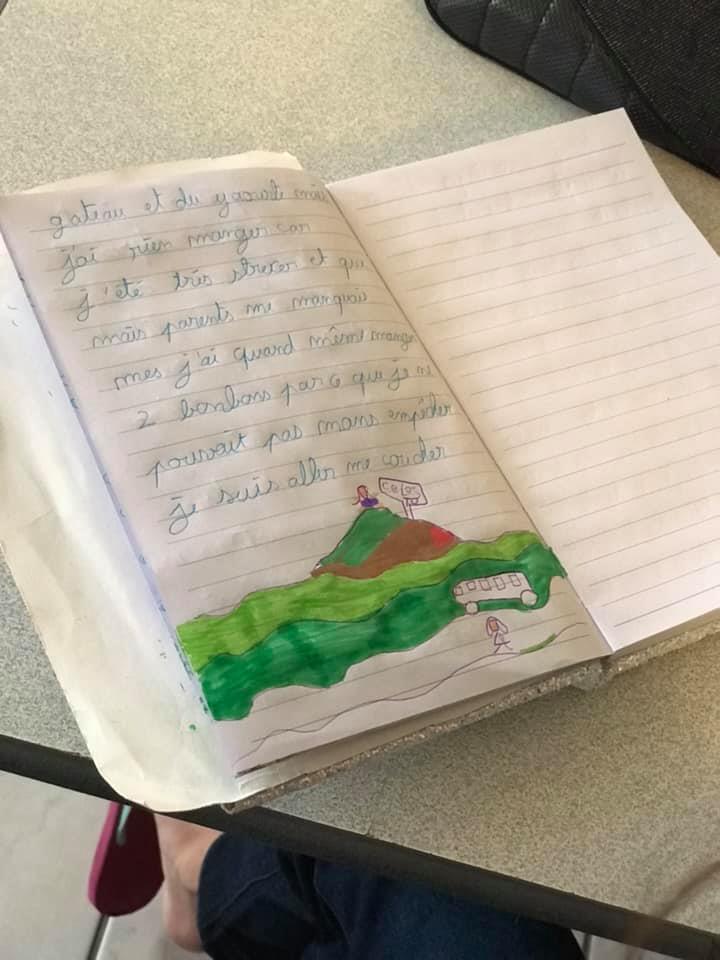 gateau et du yaourte mais
j'ai rien manger car
j'été très stresser et que
mais parents me manquais
mes j'ai quand même manger
2 bonbons par ce que je ne
pouvait pas mans empêcher
je suis aller me coucher